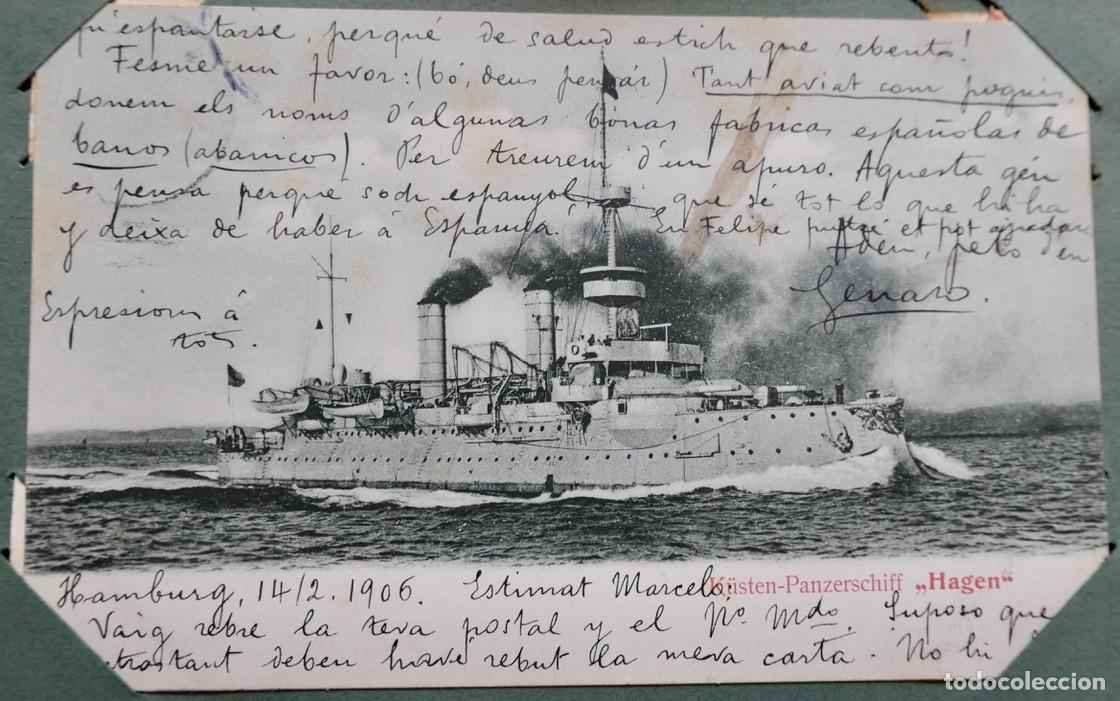 qu'espantarse, perqué de salud estich que rebento!
Fesme un favor: (bó, deus pensár) Tant aviat com poguis,
donem els noms d'algunas bonas fabricas españolas de
banos (abanicos). Per treurem d'un apuro. Aquesta gén
es pensa perqué soch espanyol, que sé tot lo que hi ha
y deixa de haber á Espanya! En Felipe putxé et pot ajudar.
Adéu, petó d'en
Genaro.
Espresions á
tots.
Küsten-Panzerschiff „Hagen“
Hamburg, 14/2. 1906. Estimat Marcelo:
Vaig rebre la teva postal y el Nº Mdo. Suposo que
entrastant deben havé rebut la meva carta. No hi
todocoleccion